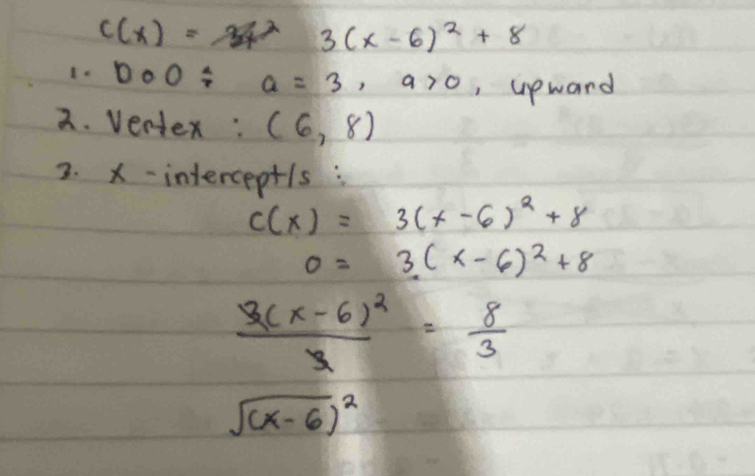 C(x) = 3(x-6)² + 8
1. DoO : a = 3, a>0, upward
2. Vertex : (6, 8)
3. x-intercept/s :
C(x) = 3(x-6)² + 8
0 = 3(x-6)² + 8
3(x-6)²/3 = 8/3
√(x-6)²